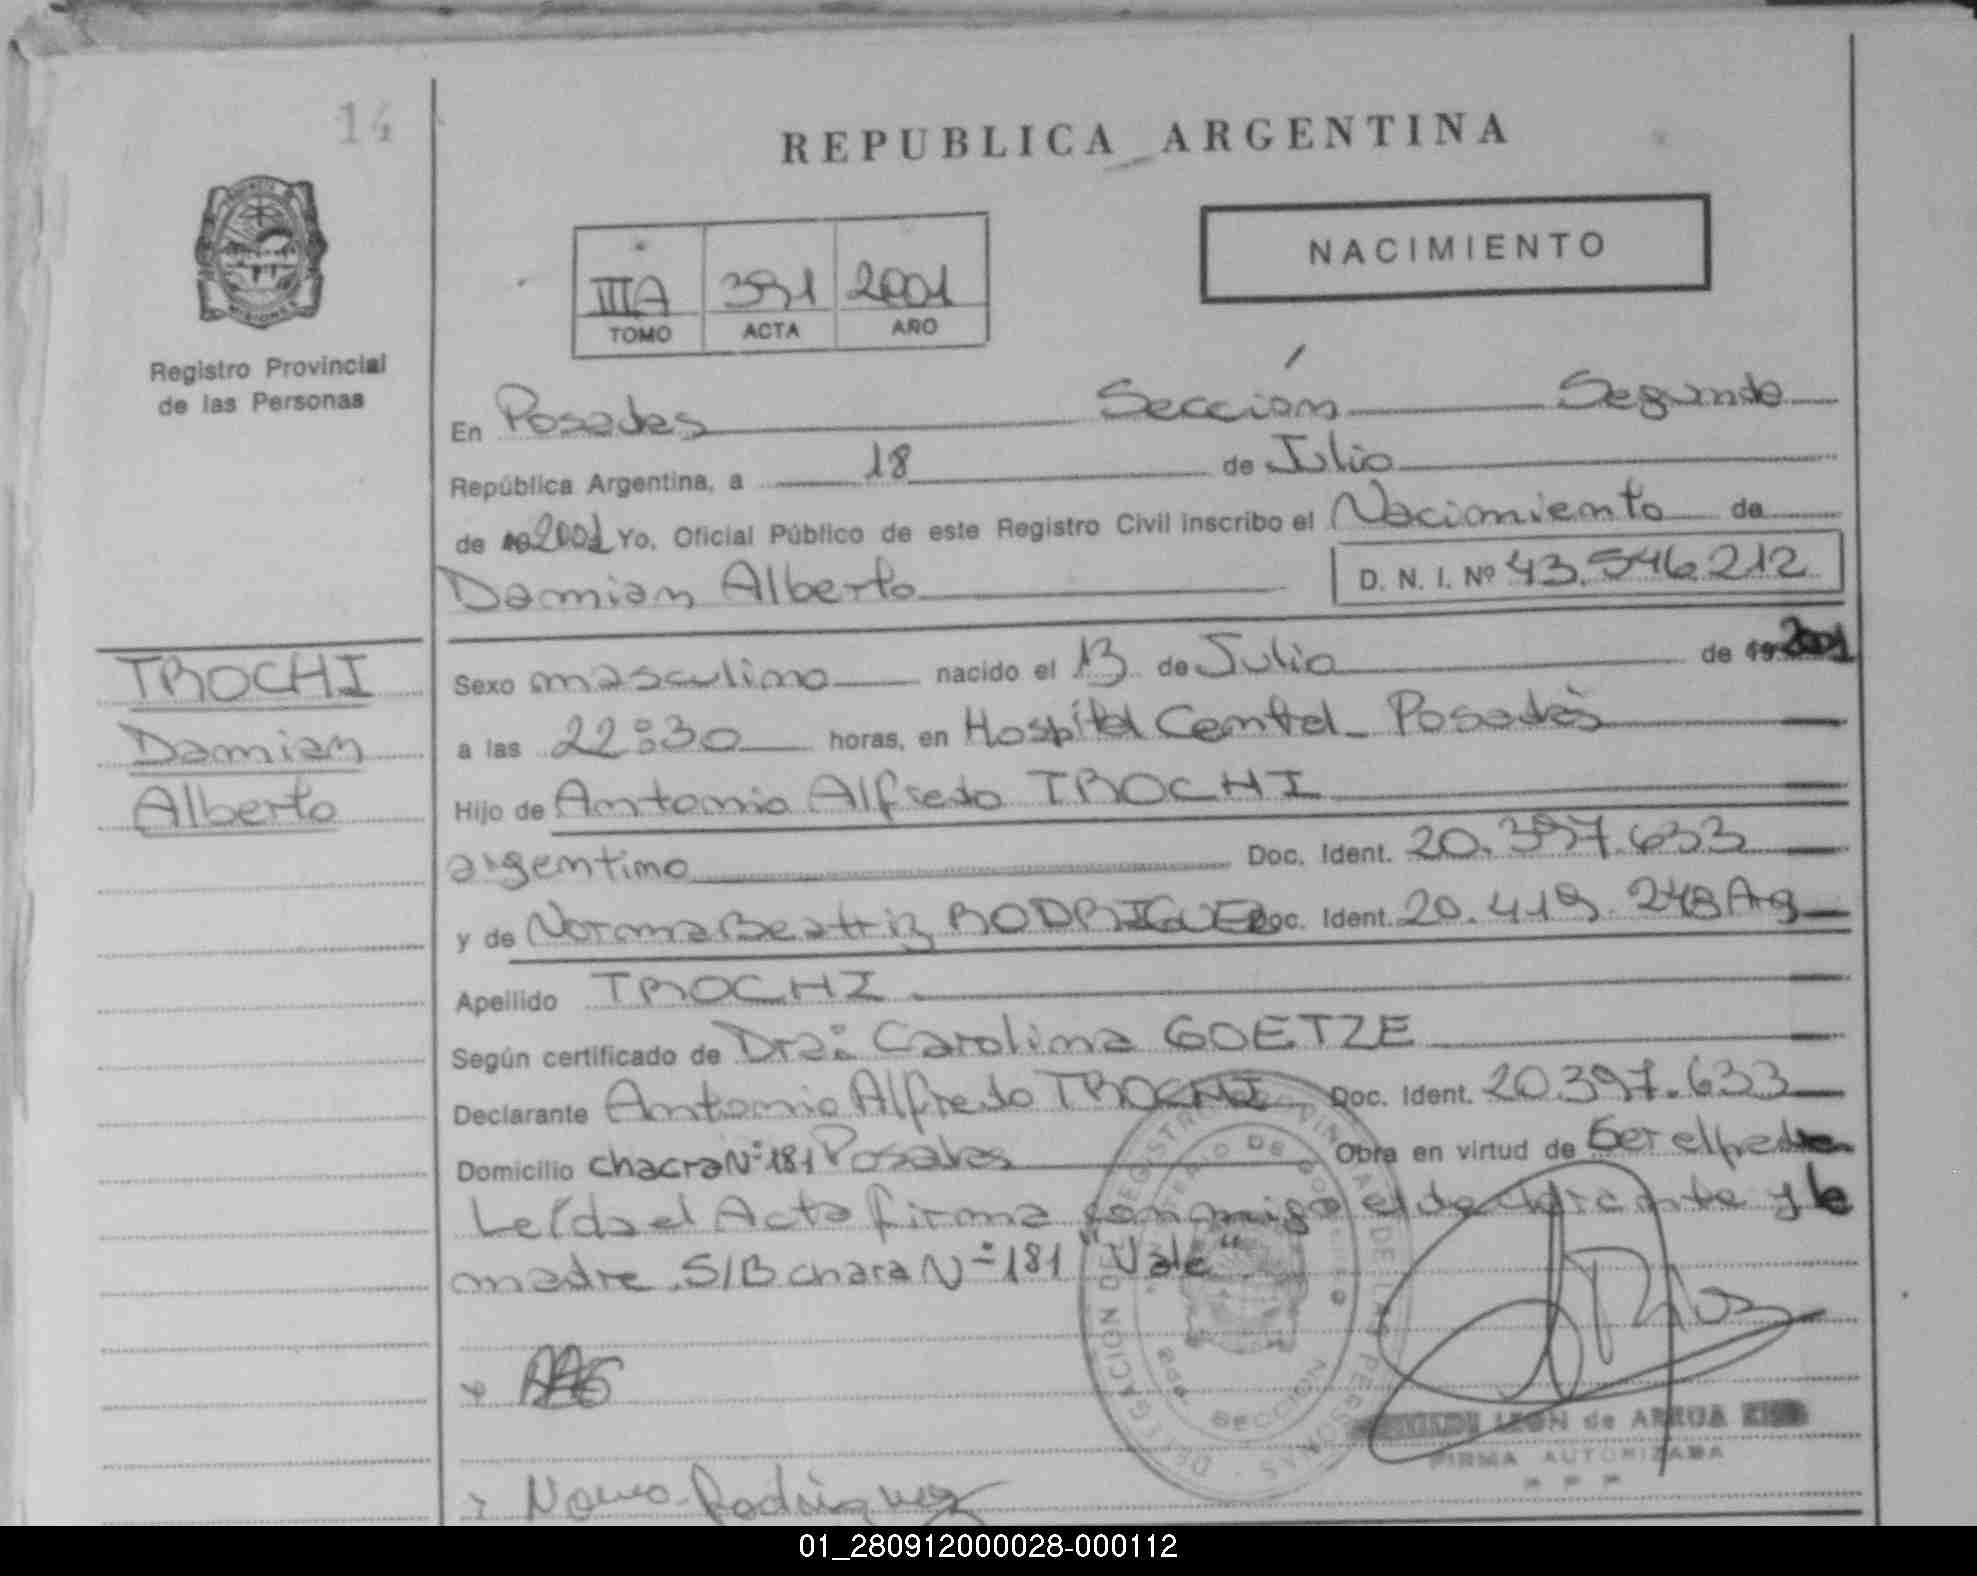 14
REPUBLICA ARGENTINA
NACIMIENTO
IIIA 391 2001
TOMO ACTA AÑO
Registro Provincial
de las Personas
En Posadas Sección Segunda
República Argentina, a 18 de Julio
de 2001 Yo, Oficial Público de este Registro Civil inscribo el Nacimiento de
Damian Alberto D. N. I. Nº 43.546.212
TROCHI
Damian
Alberto
Sexo masculino nacido el 13 de Julio de 19 2001
a las 22:30 horas, en Hospital Central Posadas
Hijo de Antonio Alfredo TROCHI
argentino Doc. Ident. 20.397.633
y de Norma Beatriz RODRIGUEZ Doc. Ident. 20.419.248 Arg
Apellido TROCHI
Según certificado de Dra: Carolina GOETZE
Declarante Antonio Alfredo TROCHI Doc. Ident. 20.397.633
Domicilio chacra Nº 181 Posadas Obra en virtud de Ser el padre
Leída el Acta firma conmigo el declarante y la
madre S/B chara Nº 181 "Vale"
DELEGACION DEL REGISTRO PROVINCIAL DE LAS PERSONAS
SECCION
LEON de ARRUA
FIRMA AUTORIZADA
R P P
Rodriguez
01_280912000028-000112